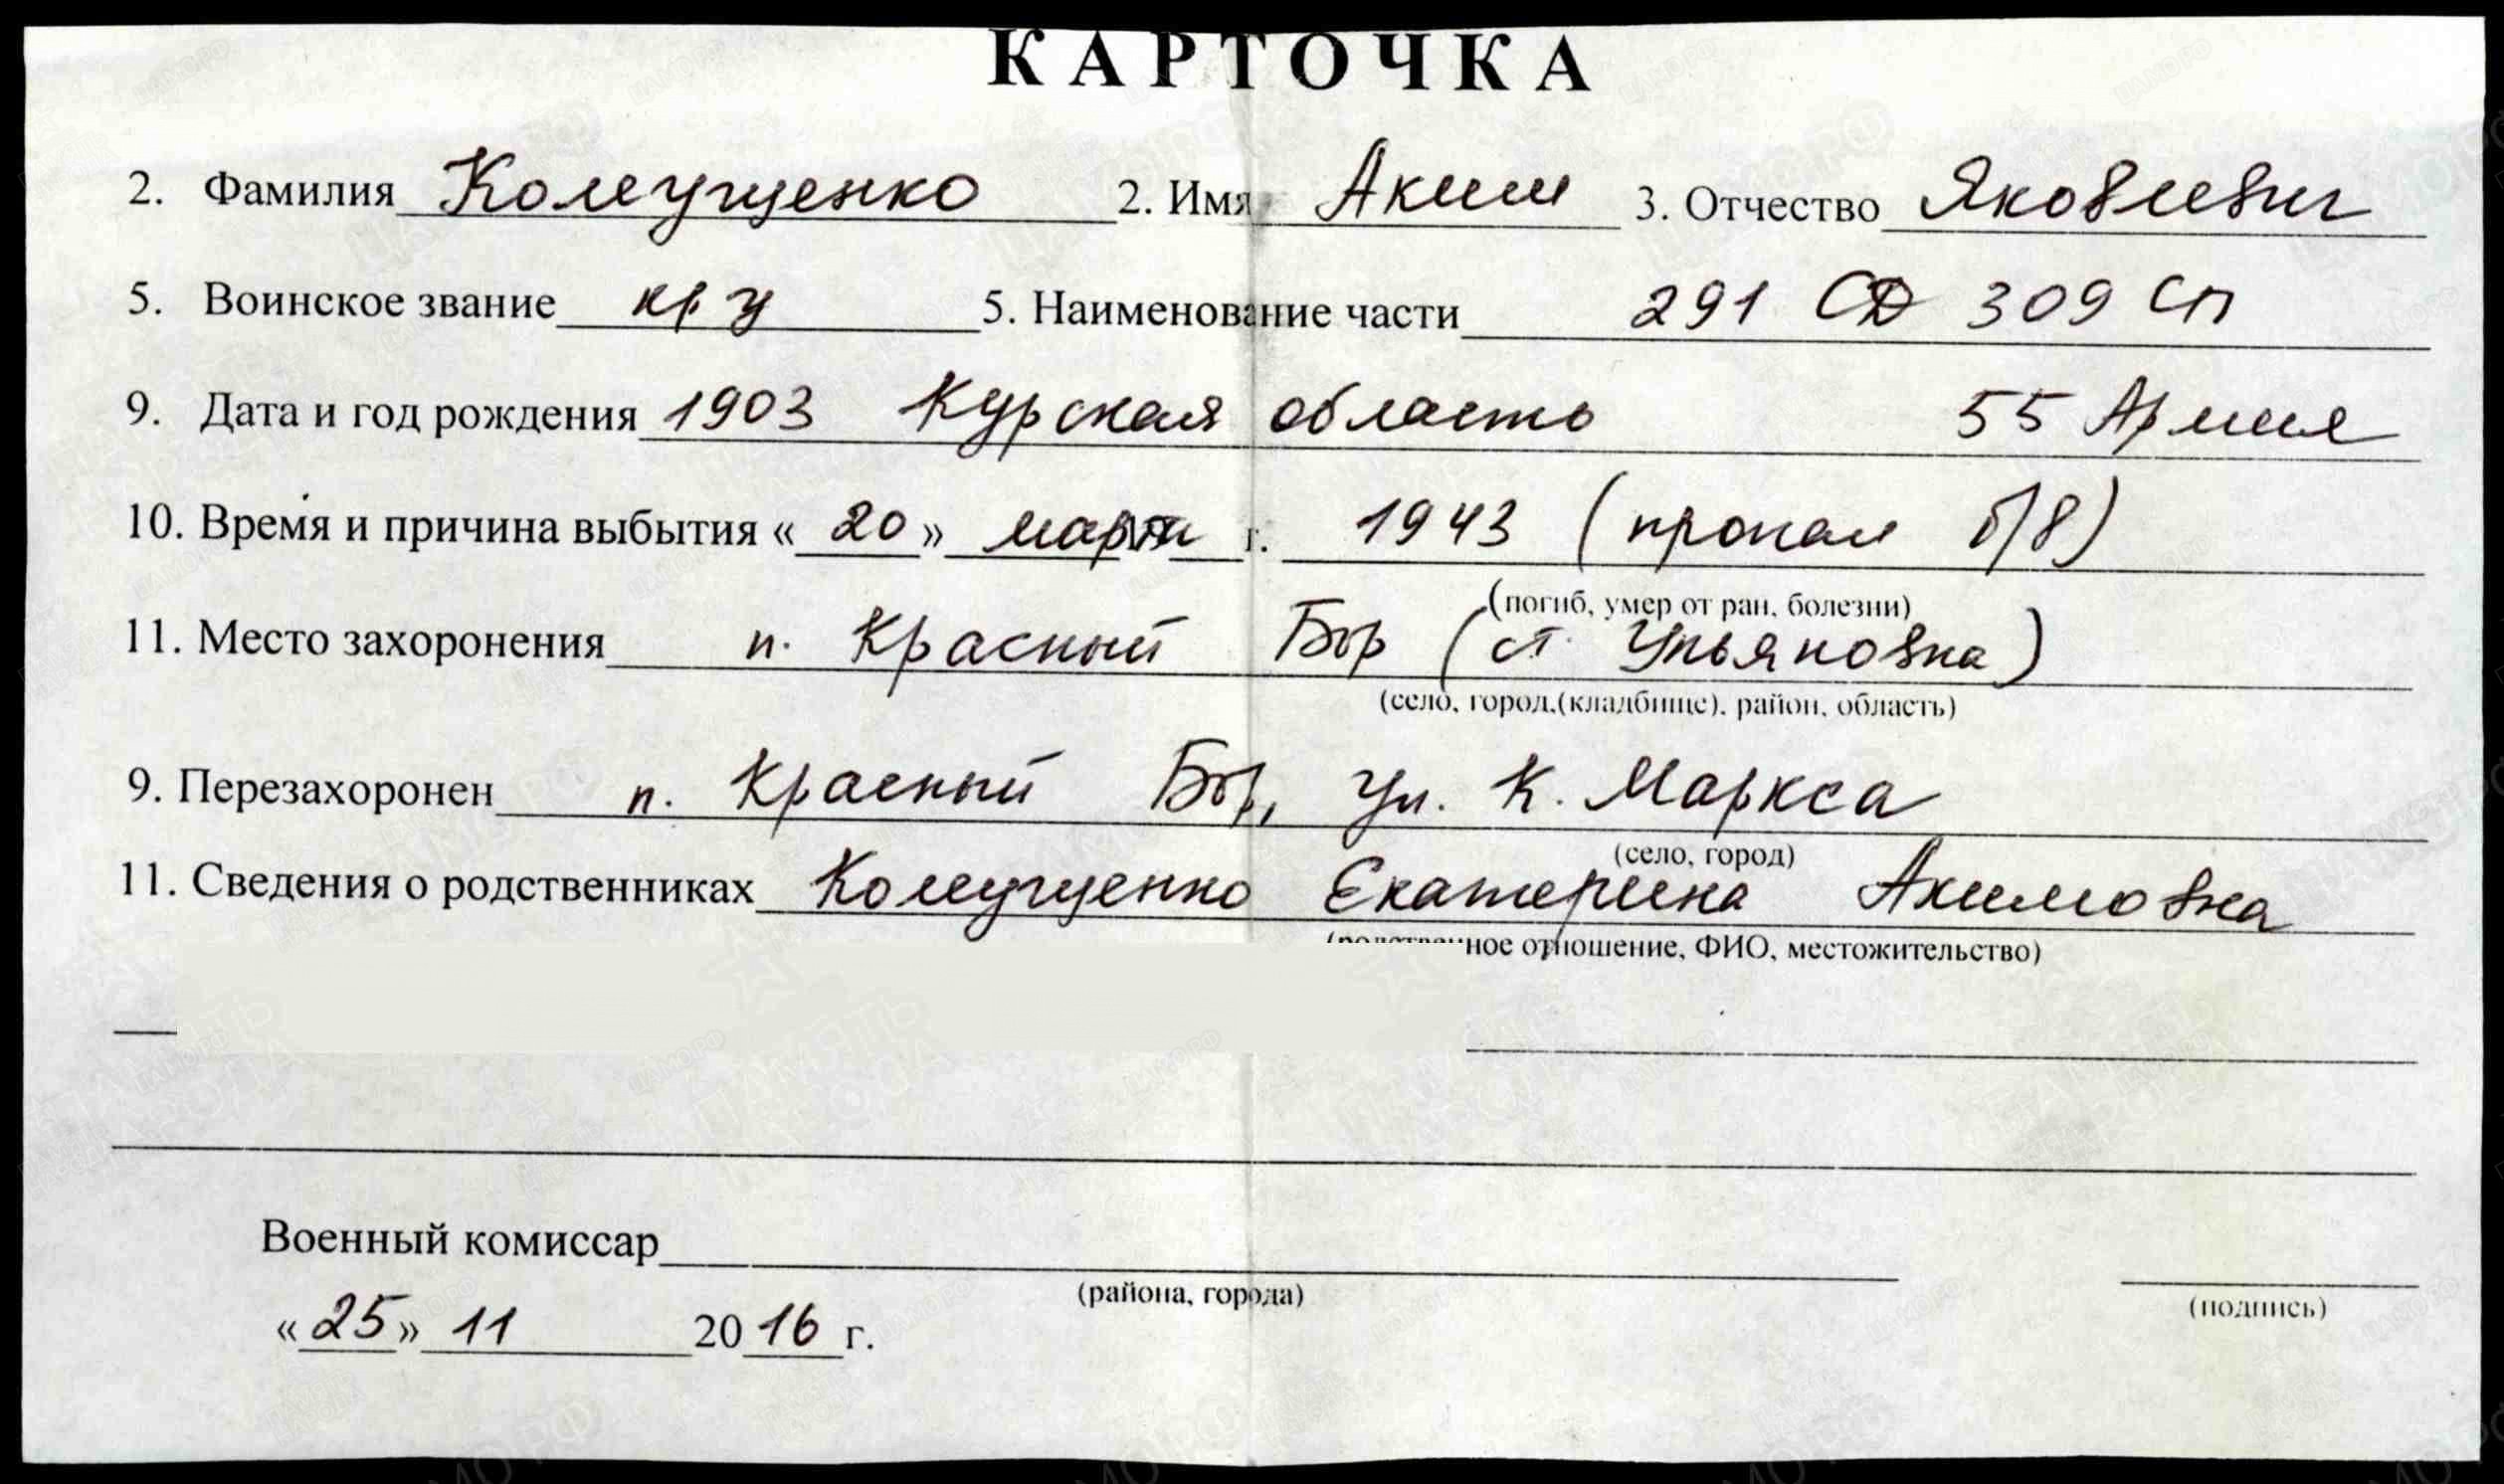 КАРТОЧКА
2. Фамилия Комущенко 2. Имя Аким 3. Отчество Яковлевич
5. Воинское звание кр-ц 5. Наименование части 291 СД 309 СП
9. Дата и год рождения 1903 Курская область 55 Армия
10. Время и причина выбытия «20» марта г. 1943 (пропал б/в)
(погиб, умер от ран, болезни)
11. Место захоронения п. Красный Бор (ст. Ульяновка)
(село, город,(кладбище), район, область)
9. Перезахоронен п. Красный Бор, ул. К. Маркса
(село, город)
11. Сведения о родственниках Комущенко Екатерина Акимовна
(родственное отношение, ФИО, местожительство)
Военный комиссар
(района, города)
(подпись)
«25» 11 2016 г.